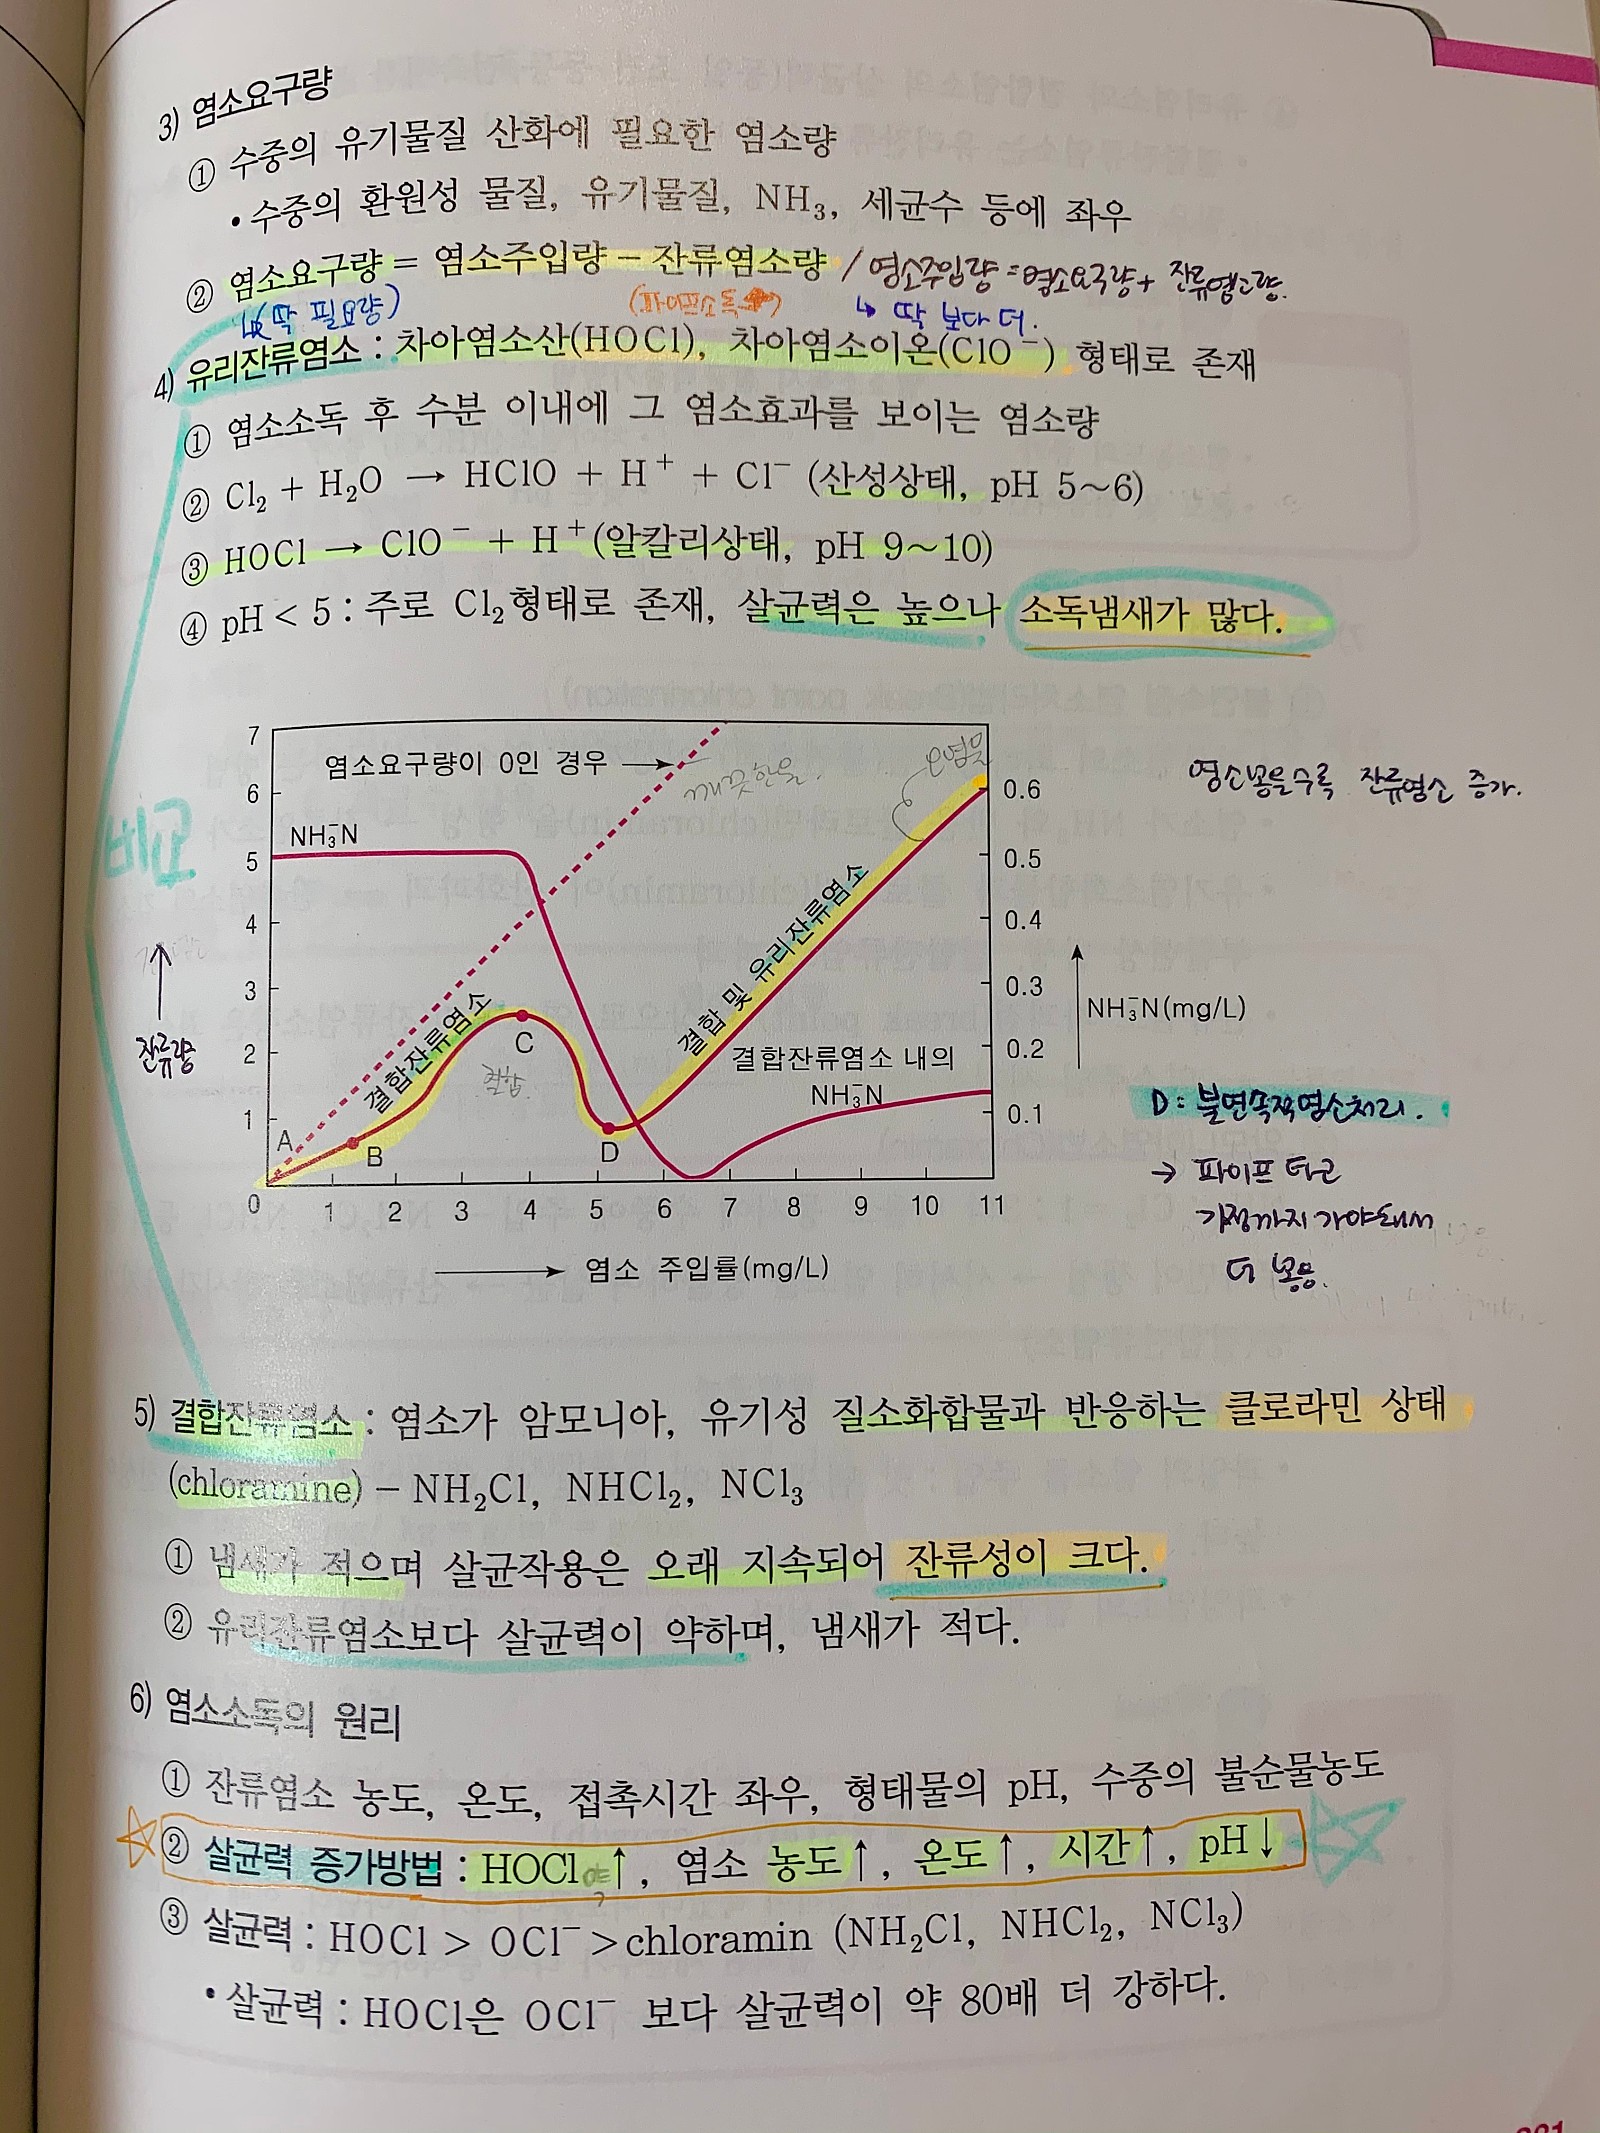 3) 염소요구량
① 수중의 유기물질 산화에 필요한 염소량
• 수중의 환원성 물질, 유기물질, NH₃, 세균수 등에 좌우
② 염소요구량 = 염소주입량 − 잔류염소량 / 염소주입량 = 염소요구량 + 잔류염소량.
↳ (딱 필요량) (파이프소독 ) ↳ 딱 보다 더.
4) 유리잔류염소 : 차아염소산(HOCl), 차아염소이온(ClO⁻) 형태로 존재
① 염소소독 후 수분 이내에 그 염소효과를 보이는 염소량
② Cl₂ + H₂O → HClO + H⁺ + Cl⁻ (산성상태, pH 5～6)
③ HOCl → ClO⁻ + H⁺(알칼리상태, pH 9～10)
④ pH < 5 : 주로 Cl₂형태로 존재, 살균력은 높으나 소독냄새가 많다.
비교
7
6
5
4
3
2
1
0
염소요구량이 0인 경우 →
깨끗한물.
오염물
염소넣을수록 잔류염소 증가.
NH₃⁻N
0.6
0.5
0.4
0.3
0.2
0.1
잔류량
결합잔류염소
결합 및 유리잔류염소
결합
A
B
C
D
결합잔류염소 내의
NH₃⁻N
NH₃⁻N(mg/L)
D : 불연속적염소처리.
→ 파이프 타고
가정까지 가야돼서
더 넣음.
1 2 3 4 5 6 7 8 9 10 11
→ 염소 주입률(mg/L)
5) 결합잔류염소 : 염소가 암모니아, 유기성 질소화합물과 반응하는 클로라민 상태
(chloramine) − NH₂Cl, NHCl₂, NCl₃
① 냄새가 적으며 살균작용은 오래 지속되어 잔류성이 크다.
② 유리잔류염소보다 살균력이 약하며, 냄새가 적다.
6) 염소소독의 원리
① 잔류염소 농도, 온도, 접촉시간 좌우, 형태물의 pH, 수중의 불순물농도
② 살균력 증가방법 : HOCl ↑, 염소 농도↑, 온도↑, 시간↑, pH↓
③ 살균력 : HOCl > OCl⁻ >chloramin (NH₂Cl, NHCl₂, NCl₃)
• 살균력 : HOCl은 OCl⁻ 보다 살균력이 약 80배 더 강하다.